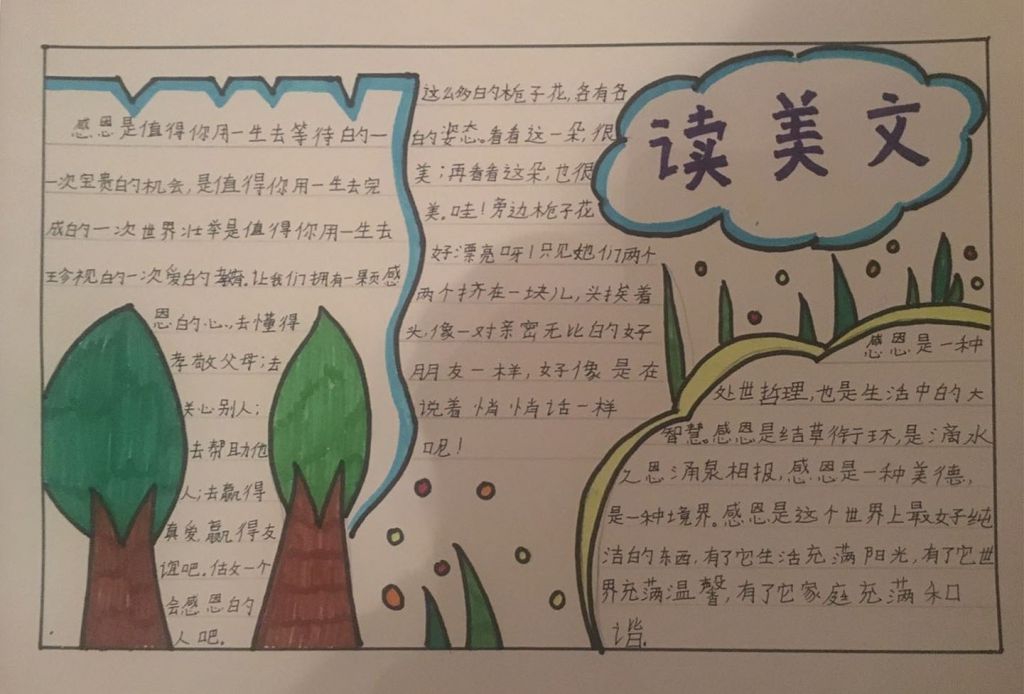 读美文
感恩是值得你用一生去等待的一
一次宝贵的机会,是值得你用一生去完
成的一次世界壮举是值得你用一生去
珍视的一次爱的教育。让我们拥有一颗感
恩的心、去懂得
孝敬父母;去
关心别人;
去帮助他
人;去赢得
真爱,赢得友
谊吧。做一个
会感恩的
人吧。
这么多的栀子花,各有各
的姿态。看看这一朵,很
美;再看看这朵,也很
美。哇!旁边栀子花
好漂亮呀!只见她们两个
两个挤在一块儿,头挨着
头,像一对亲密无比的好
朋友一样,好像是在
说着悄悄话一样
呢!
感恩是一种
处世哲理,也是生活中的大
智慧。感恩是结草衔环,是滴水
之恩涌泉相报,感恩是一种美德,
是一种境界。感恩是这个世界上最好纯
洁的东西,有了它生活充满阳光,有了它世
界充满温馨,有了它家庭充满和
谐.